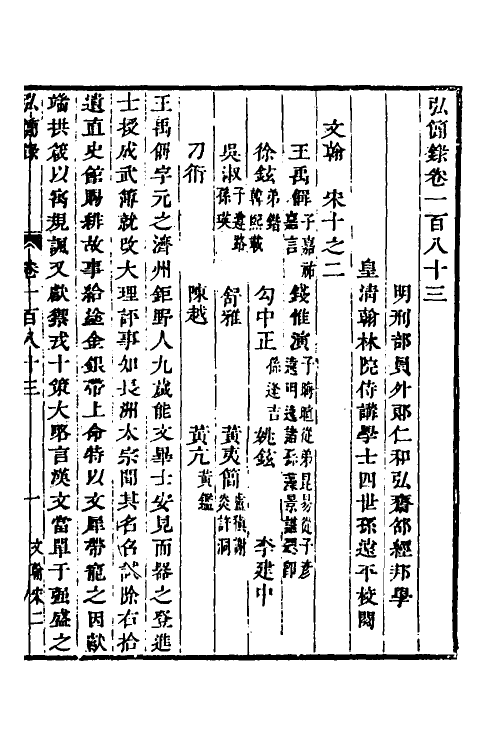 弘簡錄卷一百八十三
明刑部員外郎仁和弘齋邵經邦學
皇清翰林院侍講學士四世孫遠平校閱
文翰 宋十之二
王禹偁 子嘉祐 嘉言 錢惟演 子晦暄從弟昆易從子彥遠明逸諸孫藻景諶勰即
徐鉉 弟鍇 韓熙載 勾中正 孫逢吉 姚鉉 李建中
吳淑 子遵路 孫瑛 舒雅 黃夷簡 盧稹謝炎許洞
刁衎 陳越 黃亢 黃鑑
王禹偁字元之濟州鉅野人九歲能文畢士安見而器之登進
士授成武簿就改大理評事知長洲太宗聞其名召試除右拾
遺直史館賜緋故事給塗金銀帶上命特以文犀帶寵之因獻
端拱箴以寓規諷又獻禦戎十策大略言漢文當單于强盛之
弘簡錄 卷一百八十三 一 文翰宋二